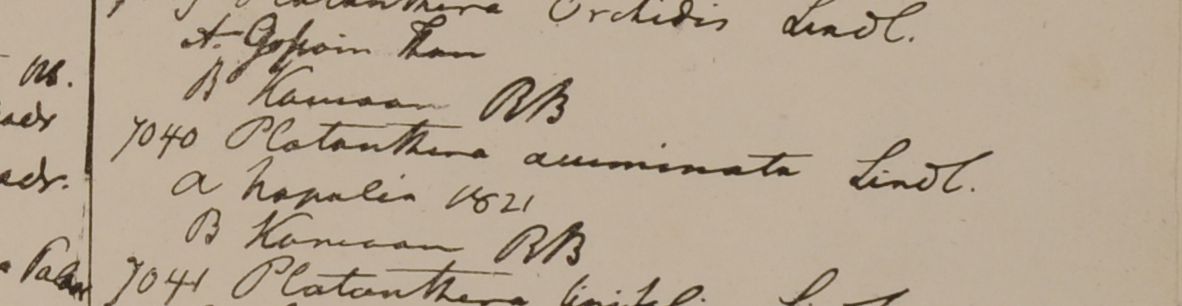 Platanthera Orchidis Lindl.
A. Gossain Than
B Kamaon RB
7040 Platanthera acuminata Lindl.
a Napalia 1821
B Kamaon RB
7041 Platanthera